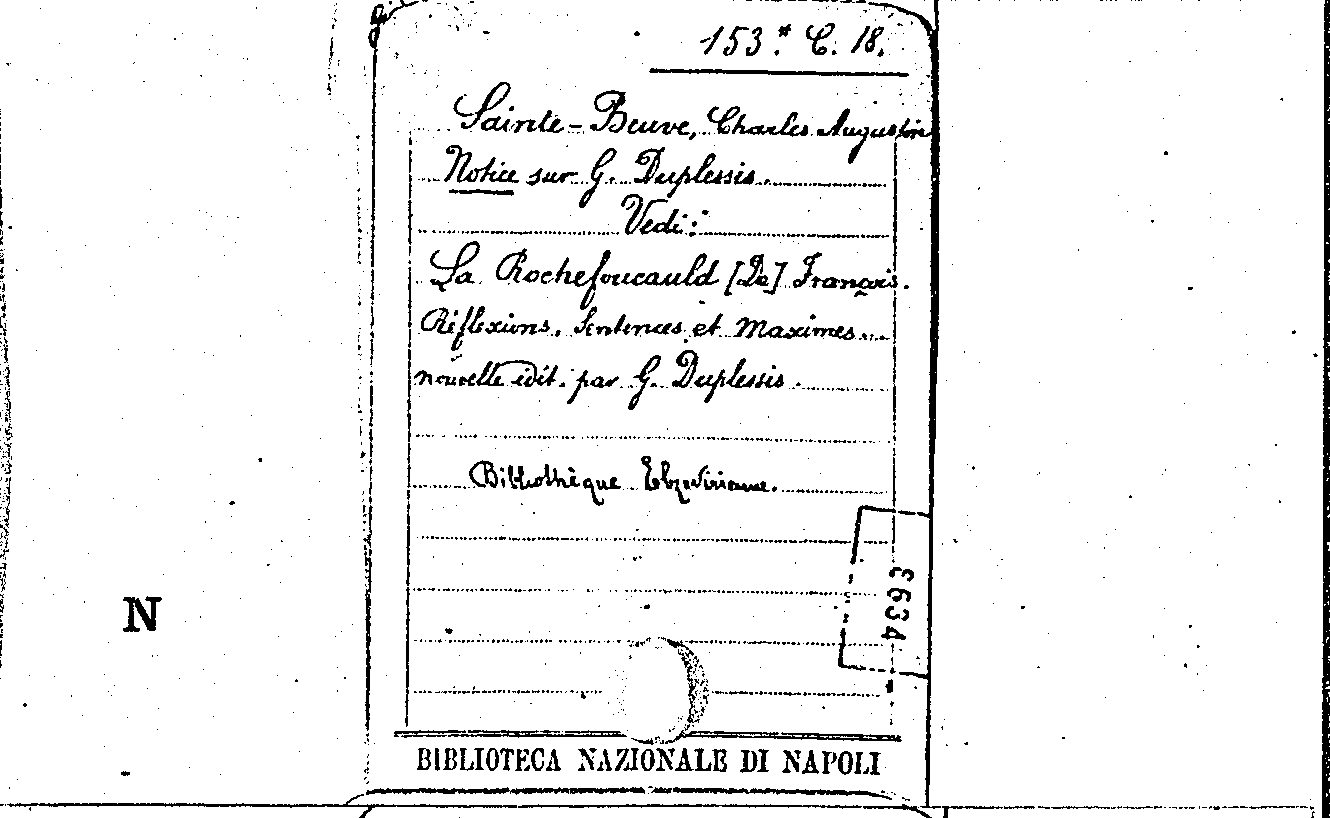 153.* C. 18.
Sainte-Beuve, Charles Augustin
Notice sur G. Duplessis.
Vedi:
La Rochefoucauld [De] François.
Réflexions, Sentences et Maximes...
nouvelle édit. par G. Duplessis.
Bibliothèque Elzevirienne.
3634
N
BIBLIOTECA NAZIONALE DI NAPOLI